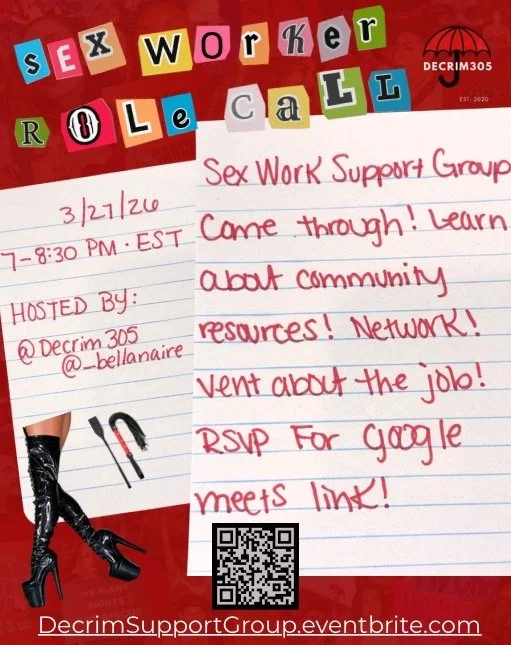 SEX WORKER
ROLe CaLL
DECRIM305
EST. 2020
3/27/26
7-8:30 PM · EST
HOSTED BY:
@Decrim305
@_bellanaire
Sex Work Support Group
Come through! Learn
about community
resources! Network!
Vent about the job!
RSVP For Google
meets link!
DecrimSupportGroup.eventbrite.com